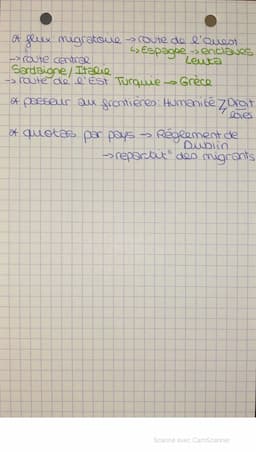 * flux migratoire → route de l'ouest
↳ Espagne → enclaves
→ route central Ceuta
Sardaigne / Italie
→ route de l'Est Turquie → Grèce
* passeur aux frontières : Humanité ≠ Droit
lois
* quotas par pays → Règlement de
Dublin
→ repartit° des migrants
Scanné avec CamScanner